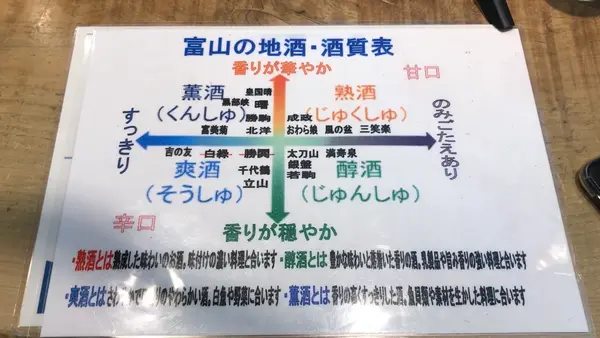 富山の地酒・酒質表
香りが華やか
甘口
薫酒
(くんしゅ)
皇国晴
黒部峡
曙
勝駒
富美菊
北洋
熟酒
(じゅくしゅ)
成政
おわら娘 風の盆 三笑楽
すっきり
のみごたえあり
吉の友 白緑 勝鬨
爽酒
(そうしゅ)
千代鶴
立山
太刀山 満寿泉
銀盤
若駒
醇酒
(じゅんしゅ)
辛口
香りが穏やか
・熟酒とは熟成した味わいのお酒。味付けの濃い料理と合います
・醇酒とは 豊かな味わいと落着いた香りの酒。乳製品や旨み香りの強い料理と合います
・爽酒とは さわやかで香りのやわらかい酒。白魚や野菜に合います
・薫酒とは 香りの高くすっきりした酒。魚貝類や素材を生かした料理に合います